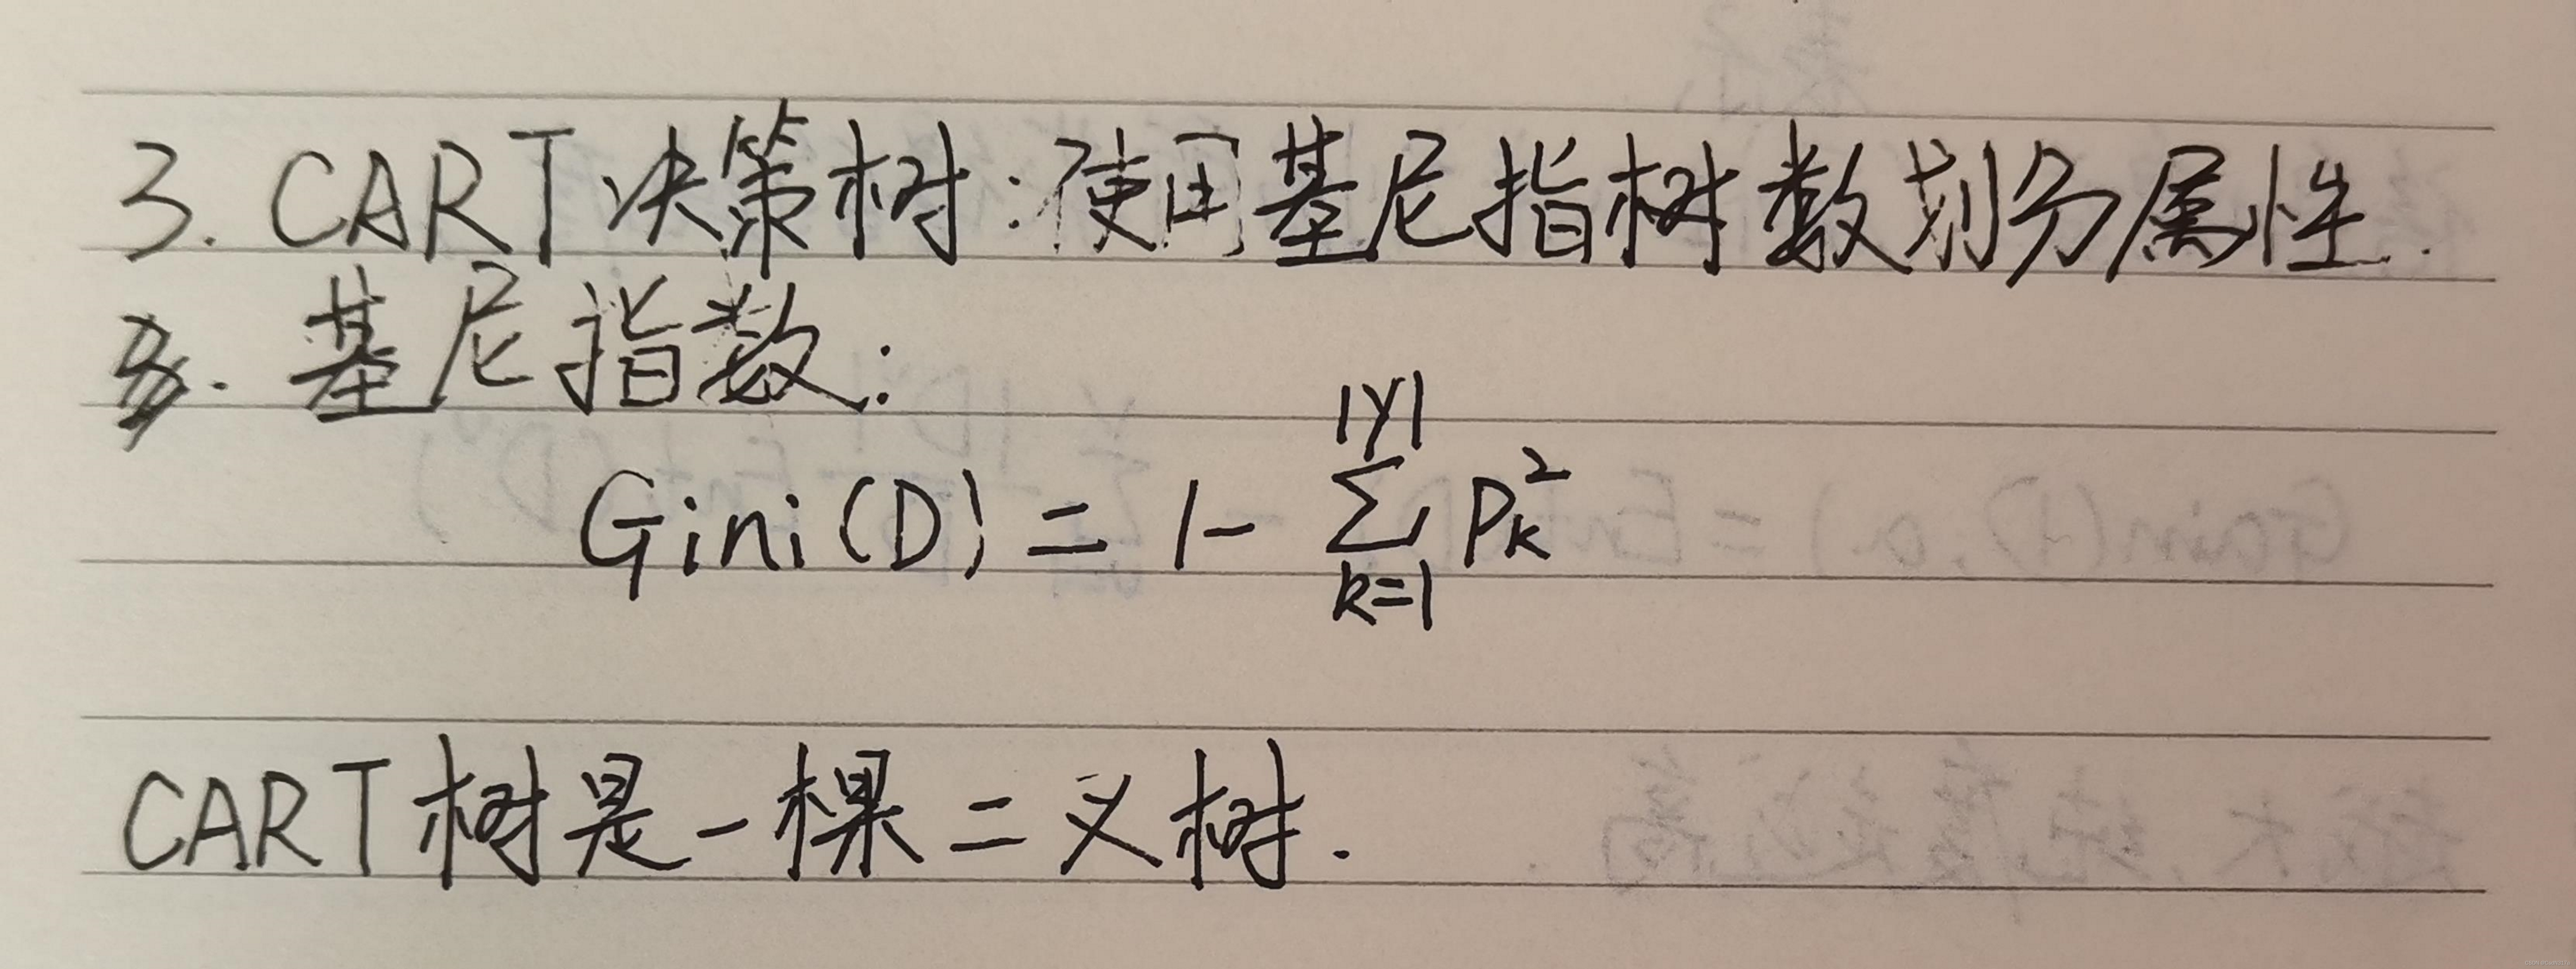 3. CART决策树:使用基尼指树数划分属性.
基尼指数:
Gini(D) = 1 - \sum_{k=1}^{|y|} P_k^2
CART树是一棵二义树.